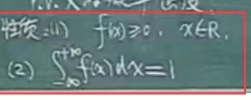 性质:(1) f(x)≥0, x∈R,
(2) ∫_{-∞}^{+∞} f(x)dx=1